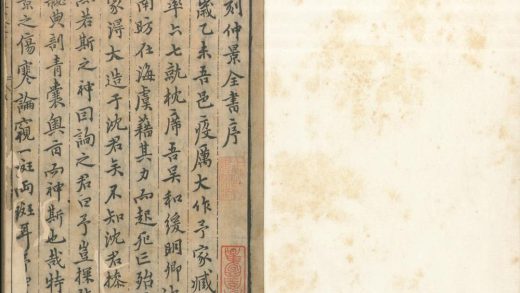 刻仲景全書序
歲乙未吾邑疫厲大作予家臧
率六七就枕席吾吳和緩明卿沈
南昉在海虞藉其力而起死亡殆
家得大造于沈君矣不知沈君操
若斯之神因詢之君曰予豈探
秘典剖青囊奧旨而神斯也哉特
景之傷寒論窺一斑兩斑耳